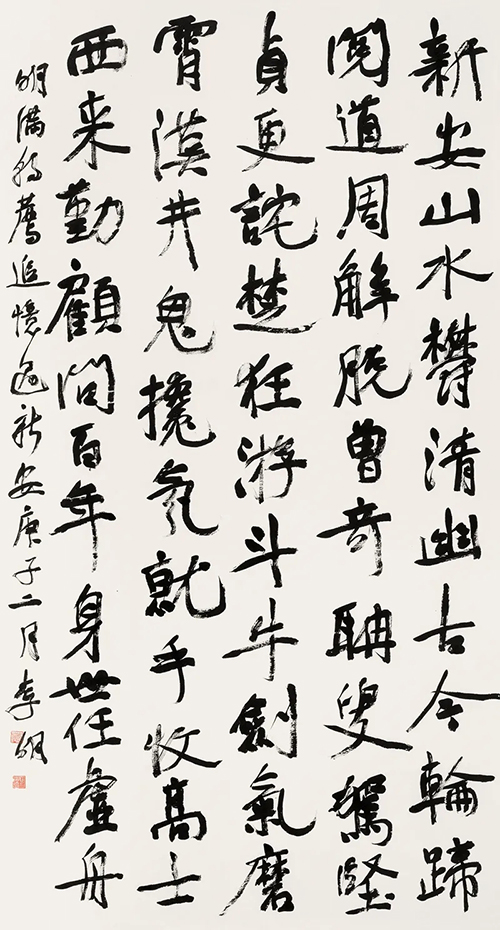 新安山水鬱清幽古今輪蹄
閱道周解脫曾奇聃叟駕堅
貞更詫楚狂游斗牛劍氣磨
霄漢井鬼攙氛就手收高士
西来勤顧問百年身世任虛舟
明满朝薦追憶過新安庚子二月李明